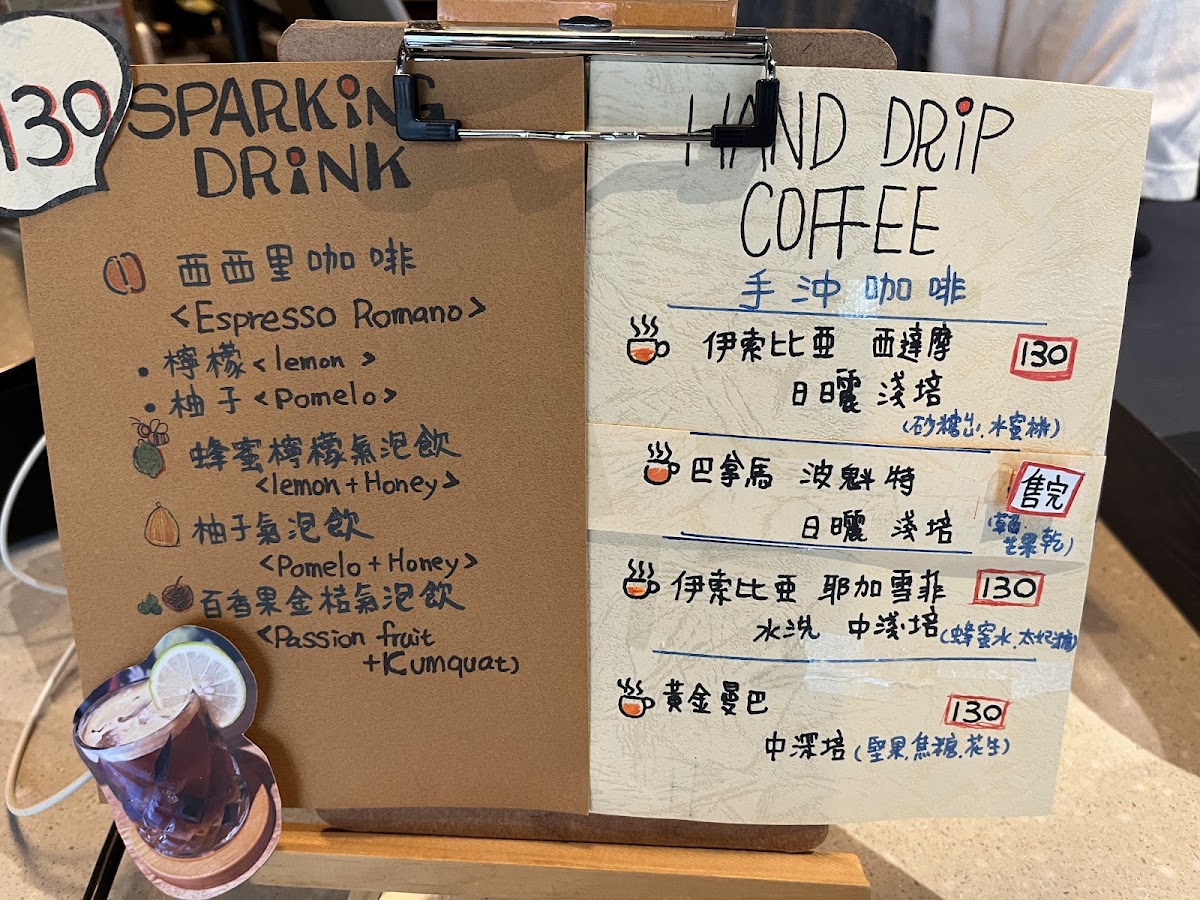 130
SPARKiNG
DRiNK
西西里咖啡
<Espresso Romano>
• 檸檬<lemon >
• 柚子<Pomelo>
蜂蜜檸檬氣泡飲
<lemon+Honey>
柚子氣泡飲
<Pomelo+Honey>
百香果金桔氣泡飲
<Passion fruit
+Kumquat)
HAND DRiP
COFFEE
手沖咖啡
伊索比亞 西達摩 130
日日曬 淺培
(砂糖 水蜜桃)
巴拿馬 波魁特 售完
日曬 淺培
芒果乾)
伊索比亞 耶加雪菲 130
水洗 中淺培(蜂蜜水.太妃糖)
黃金曼巴 130
中深培(堅果.焦糖.花生)